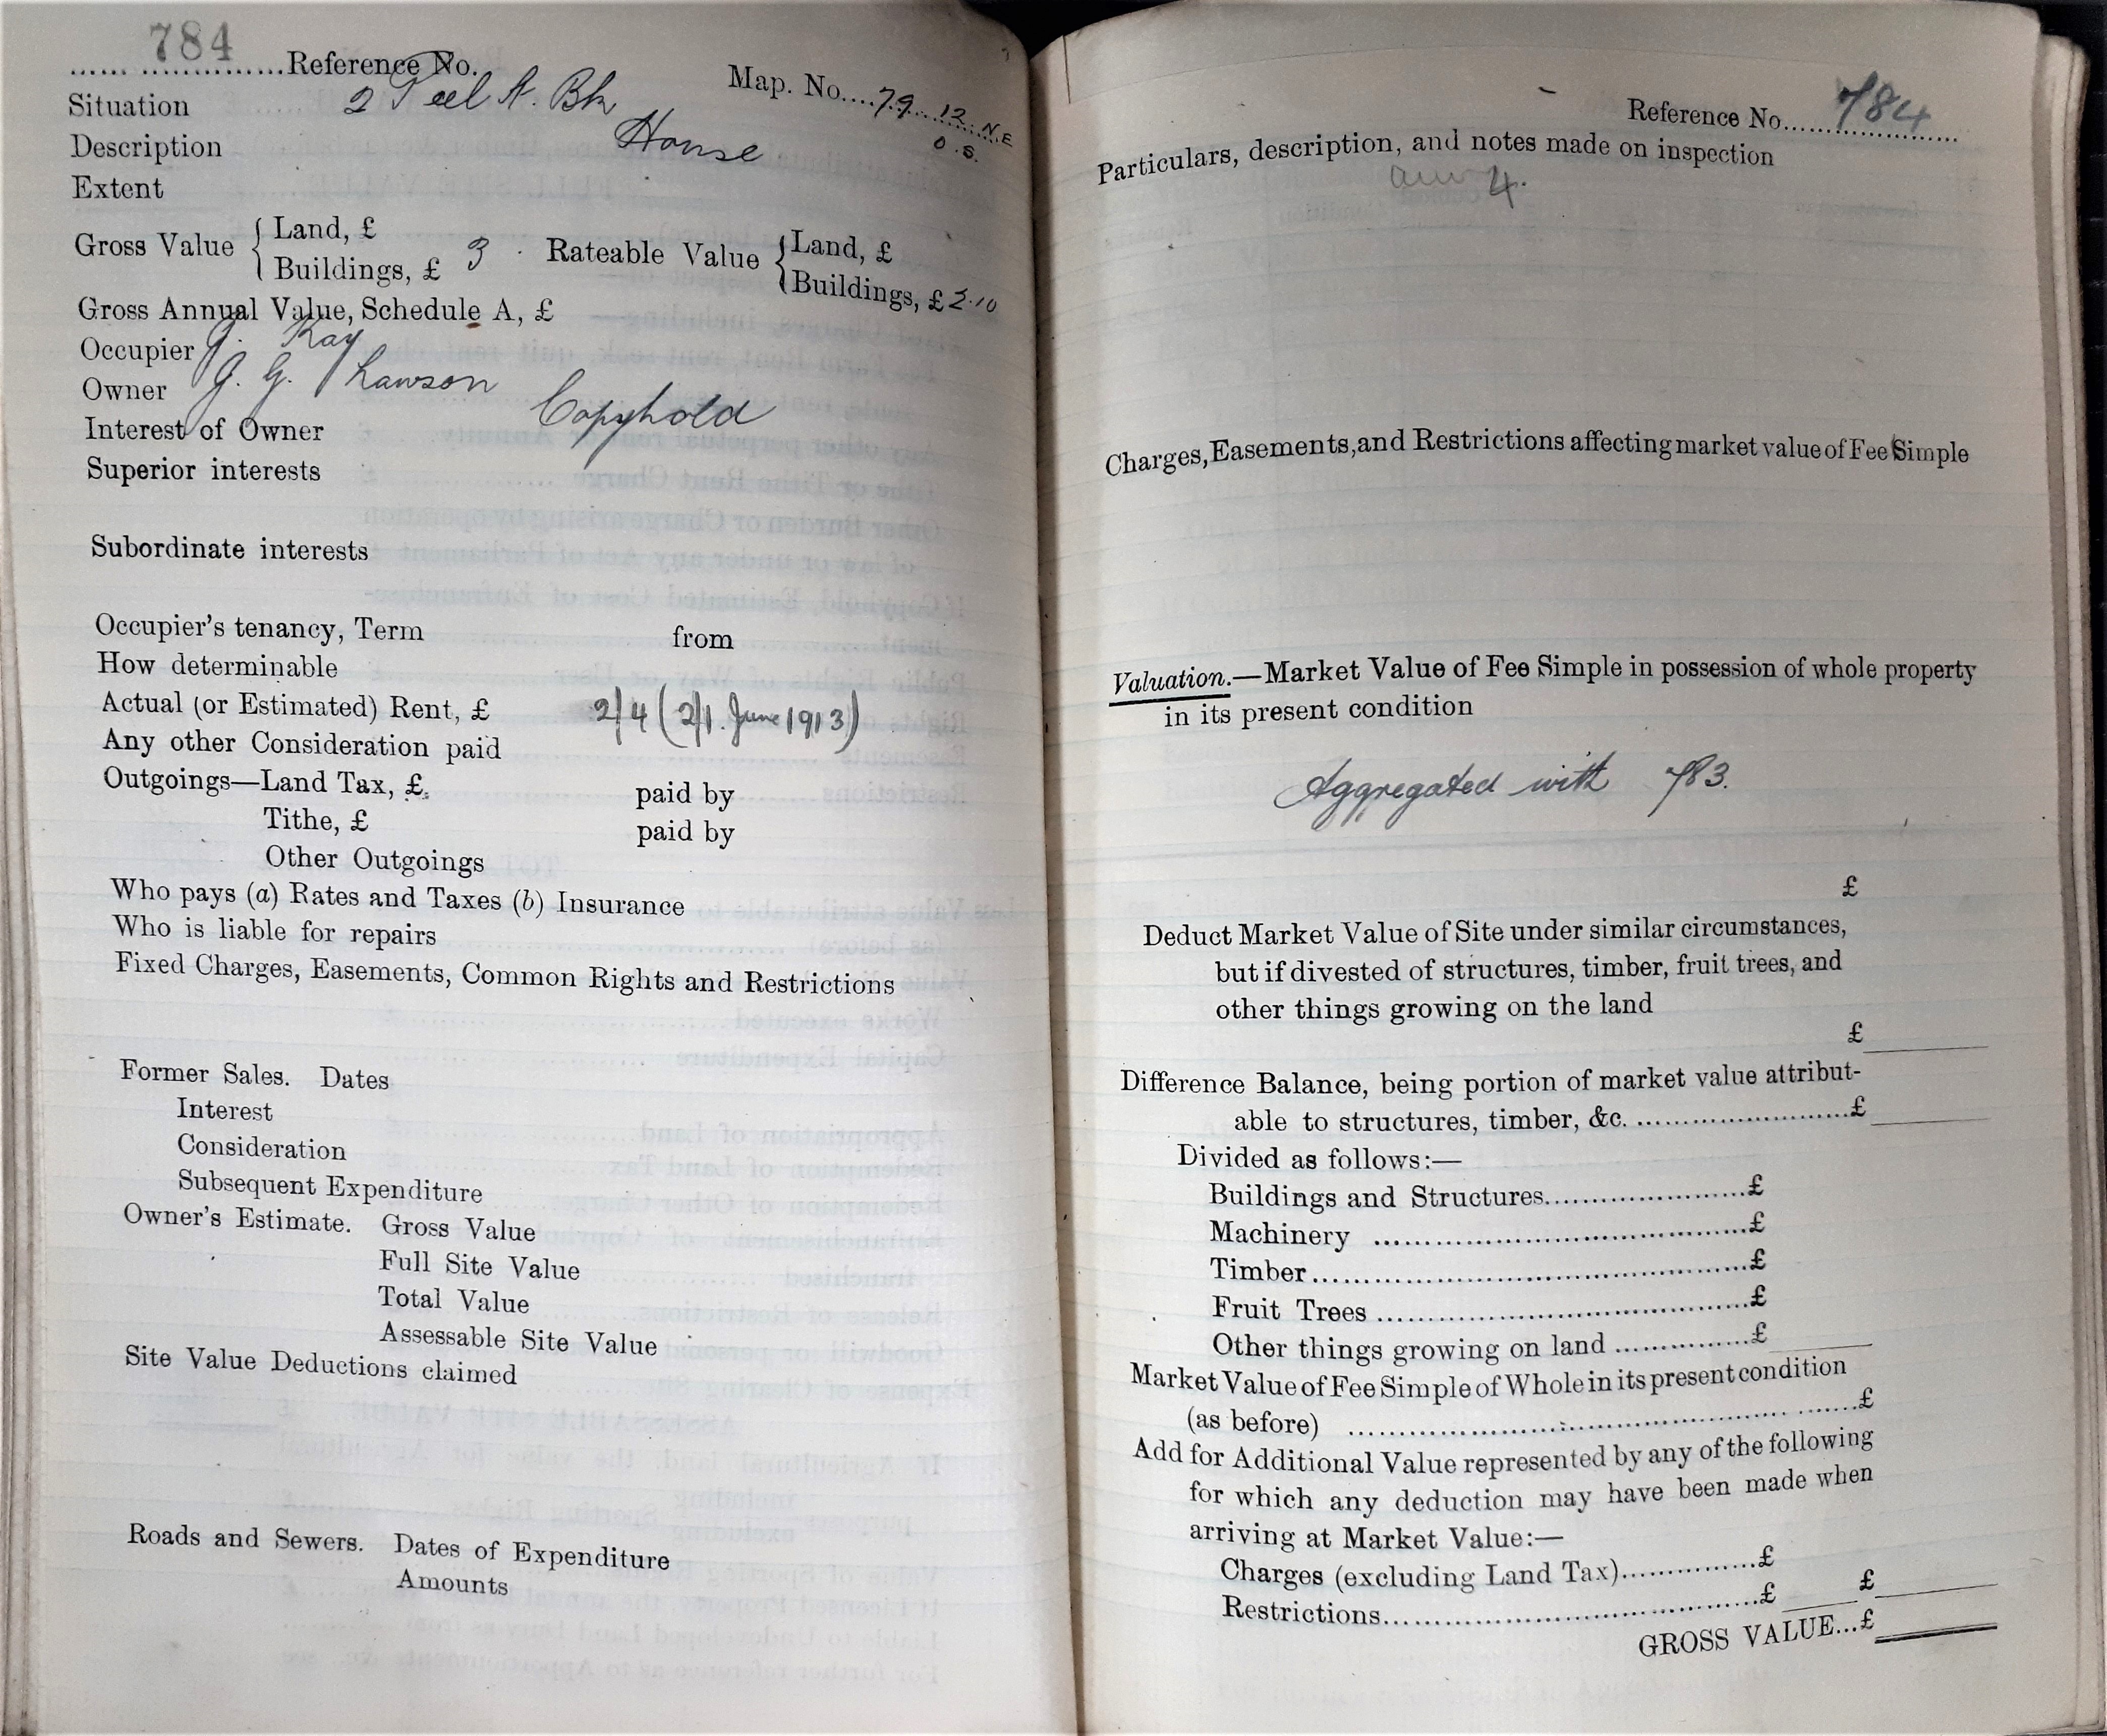 784
Reference No.
Map. No. 79 12 N.E
O.S.
Situation 2 Peel St. Bk
Description House
Extent
Gross Value { Land, £
Buildings, £ 3
Rateable Value { Land, £
Buildings, £ 2.10
Gross Annual Value, Schedule A, £
Occupier J. Kay
Owner J. G. Lawson
Interest of Owner Copyhold
Superior interests
Subordinate interests
Occupier's tenancy, Term from
How determinable
Actual (or Estimated) Rent, £ 2/4 (2/1. June 1913)
Any other Consideration paid
Outgoings—Land Tax, £ paid by
Tithe, £ paid by
Other Outgoings
Who pays (a) Rates and Taxes (b) Insurance
Who is liable for repairs
Fixed Charges, Easements, Common Rights and Restrictions
Former Sales. Dates
Interest
Consideration
Subsequent Expenditure
Owner's Estimate. Gross Value
Full Site Value
Total Value
Assessable Site Value
Site Value Deductions claimed
Roads and Sewers. Dates of Expenditure
Amounts
Reference No. 784
Particulars, description, and notes made on inspection
4.
Charges, Easements, and Restrictions affecting market value of Fee Simple
Valuation.—Market Value of Fee Simple in possession of whole property
in its present condition
Aggregated with 783.
£
Deduct Market Value of Site under similar circumstances,
but if divested of structures, timber, fruit trees, and
other things growing on the land
£
Difference Balance, being portion of market value attribut-
able to structures, timber, &c. £
Divided as follows:—
Buildings and Structures £
Machinery £
Timber £
Fruit Trees £
Other things growing on land £
Market Value of Fee Simple of Whole in its present condition
(as before) £
Add for Additional Value represented by any of the following
for which any deduction may have been made when
arriving at Market Value:—
Charges (excluding Land Tax) £
Restrictions £ £
GROSS VALUE...£